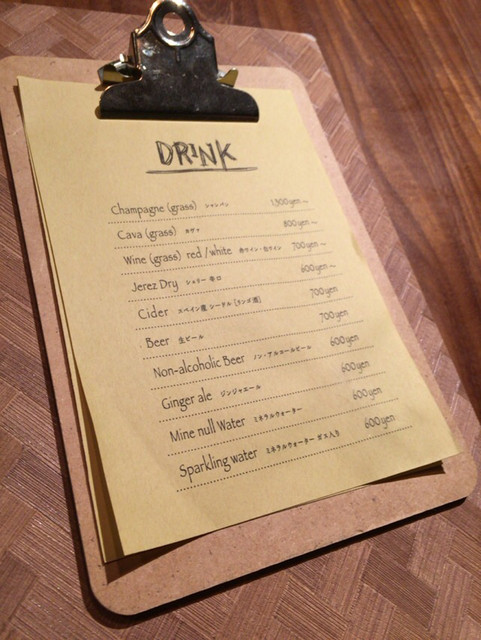 DRINK
Champagne (grass) シャンパン 1,300yen〜
Cava (grass) カヴァ 800yen〜
Wine (grass) red / white 赤ワイン・白ワイン 700yen〜
Jerez Dry シェリー 辛口 600yen〜
Cider スペイン産 シードル [リンゴ酒] 700yen
Beer 生ビール 700yen
Non-alcoholic Beer ノン・アルコールビール 600yen
Ginger ale ジンジャエール 600yen
Mine null Water ミネラルウォーター 600yen
Sparkling water ミネラルウォーター ガス入り 600yen